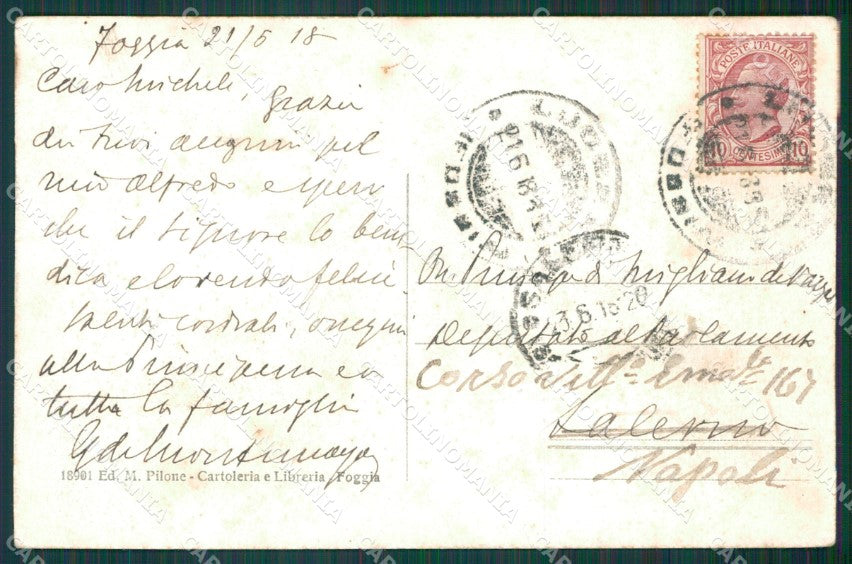 Foggia 21/6 18
Caro Michele, Grazie
dei tuoi auguri pel
mio Alfredo e spero
che il Signore lo bene
dica e lo renda felice
Saluti cordiali, omaggi
alla Principessa e a
tutta la famiglia
18901 Ed. M. Pilone - Cartoleria e Libreria - Foggia
POSTE ITALIANE
10 CENTESIMI 10
LUCERA
FOGGIA
21.6.18
3.6.18 20
Principe di Migliano
Deputato al Parlamento
Corso Vitt.o Em.le 167
Salerno
Napoli
CARTOLINOMANIA